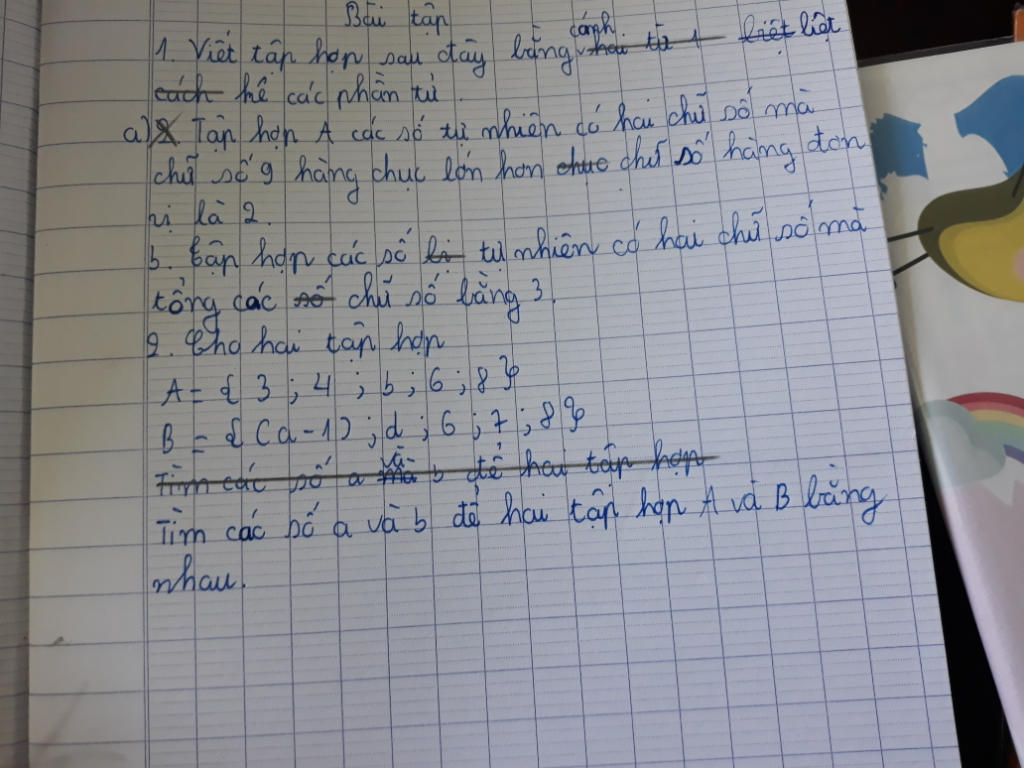 Bài tập
1. Viết tập hợp sau đây bằng cánh hai từ 1 liệt liệt
cách hê các phần tử.
a) 2 Tập hợp A các số tự nhiên có hai chữ số mà
chữ số 9 hàng chục lớn hơn chục chữ số hàng đơn
vị là 2.
b. Tập hợp các số tự nhiên có hai chữ số mà
tổng các số chữ số bằng 3.
2. Cho hai tập hợp
A = { 3 ; 4 ; b ; 6 ; 8 }
B = { (a - 1) ; d ; 6 ; 7 ; 8 }
Tìm các số a và b để hai tập hợp
Tìm các số a và b để hai tập hợp A và B bằng
nhau.